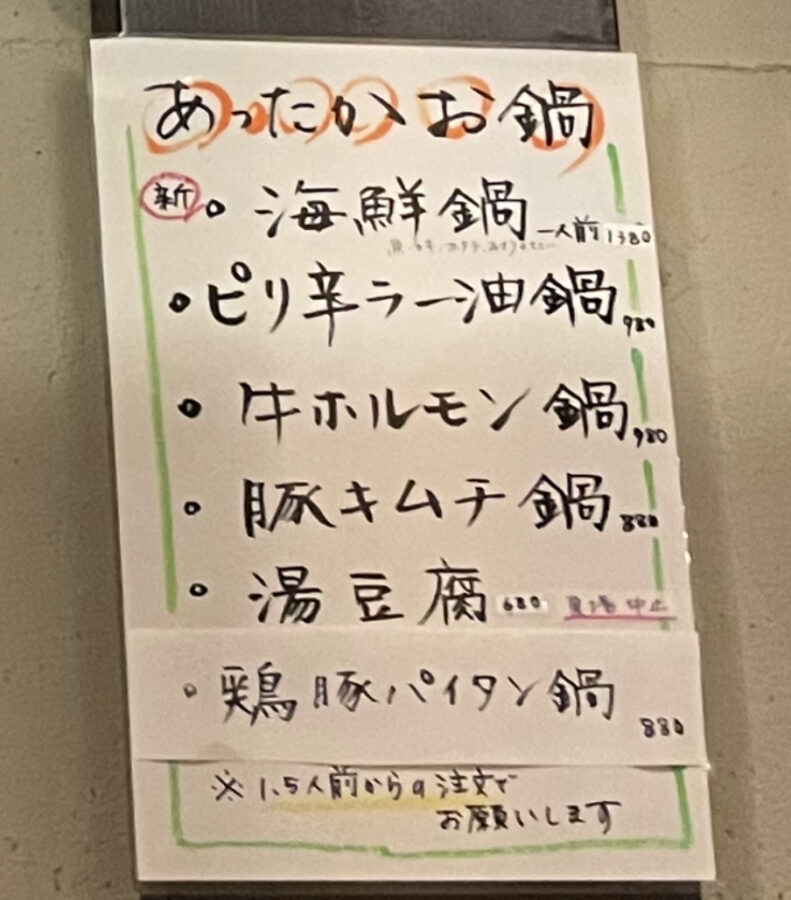 あったかお鍋
新 • 海鮮鍋 一人前 1380
• ピリ辛ラー油鍋 980
• 牛ホルモン鍋 980
• 豚キムチ鍋 880
• 湯豆腐 680 中止
• 鶏豚パイタン鍋 880
※ 1.5人前からの注文で
お願いします